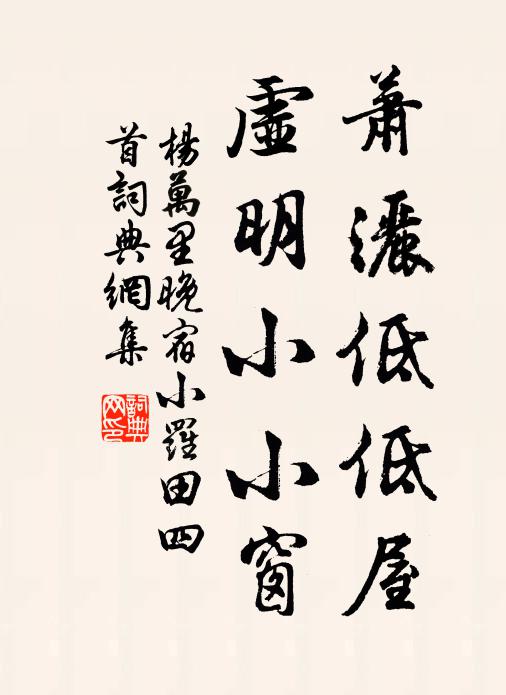 蕭灑低低屋
虛明小小窗
楊萬里晚宿小羅田四
首詞典網集
詞典
网印